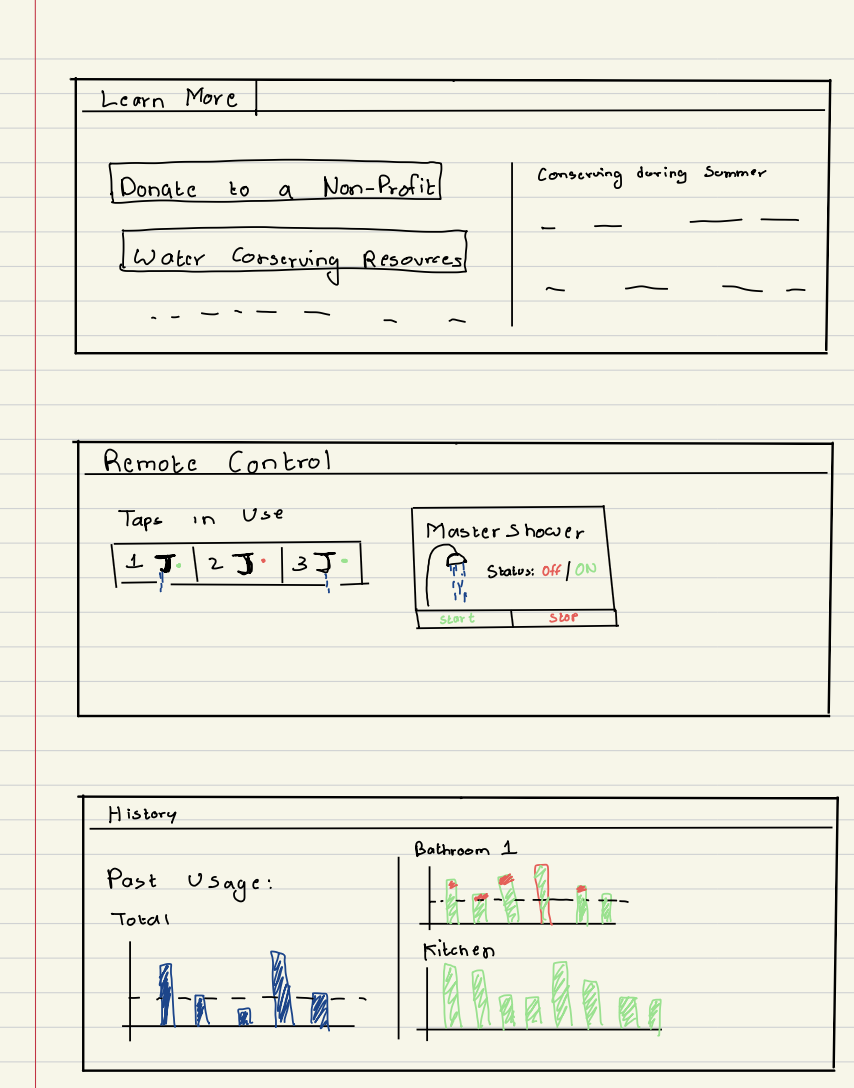 Learn More
Donate to a Non-Profit
Water Conserving Resources
Conserving during Summer
Remote Control
Taps in Use
1 2 3
Master Shower
Status: Off / ON
Start Stop
History
Past Usage:
Total
Bathroom 1
Kitchen